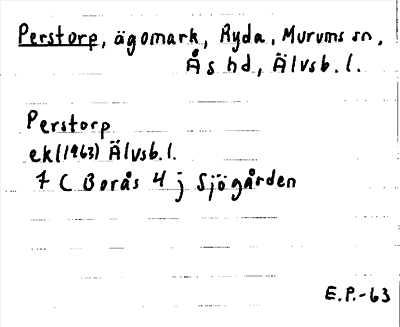 Perstorp, ägomark, Ryda, Murums sn,
Ås hd, Älvsb. l.
Perstorp
ek(1963) Älvsb. l.
7 C Borås 4 j Sjögården
E.P.-63